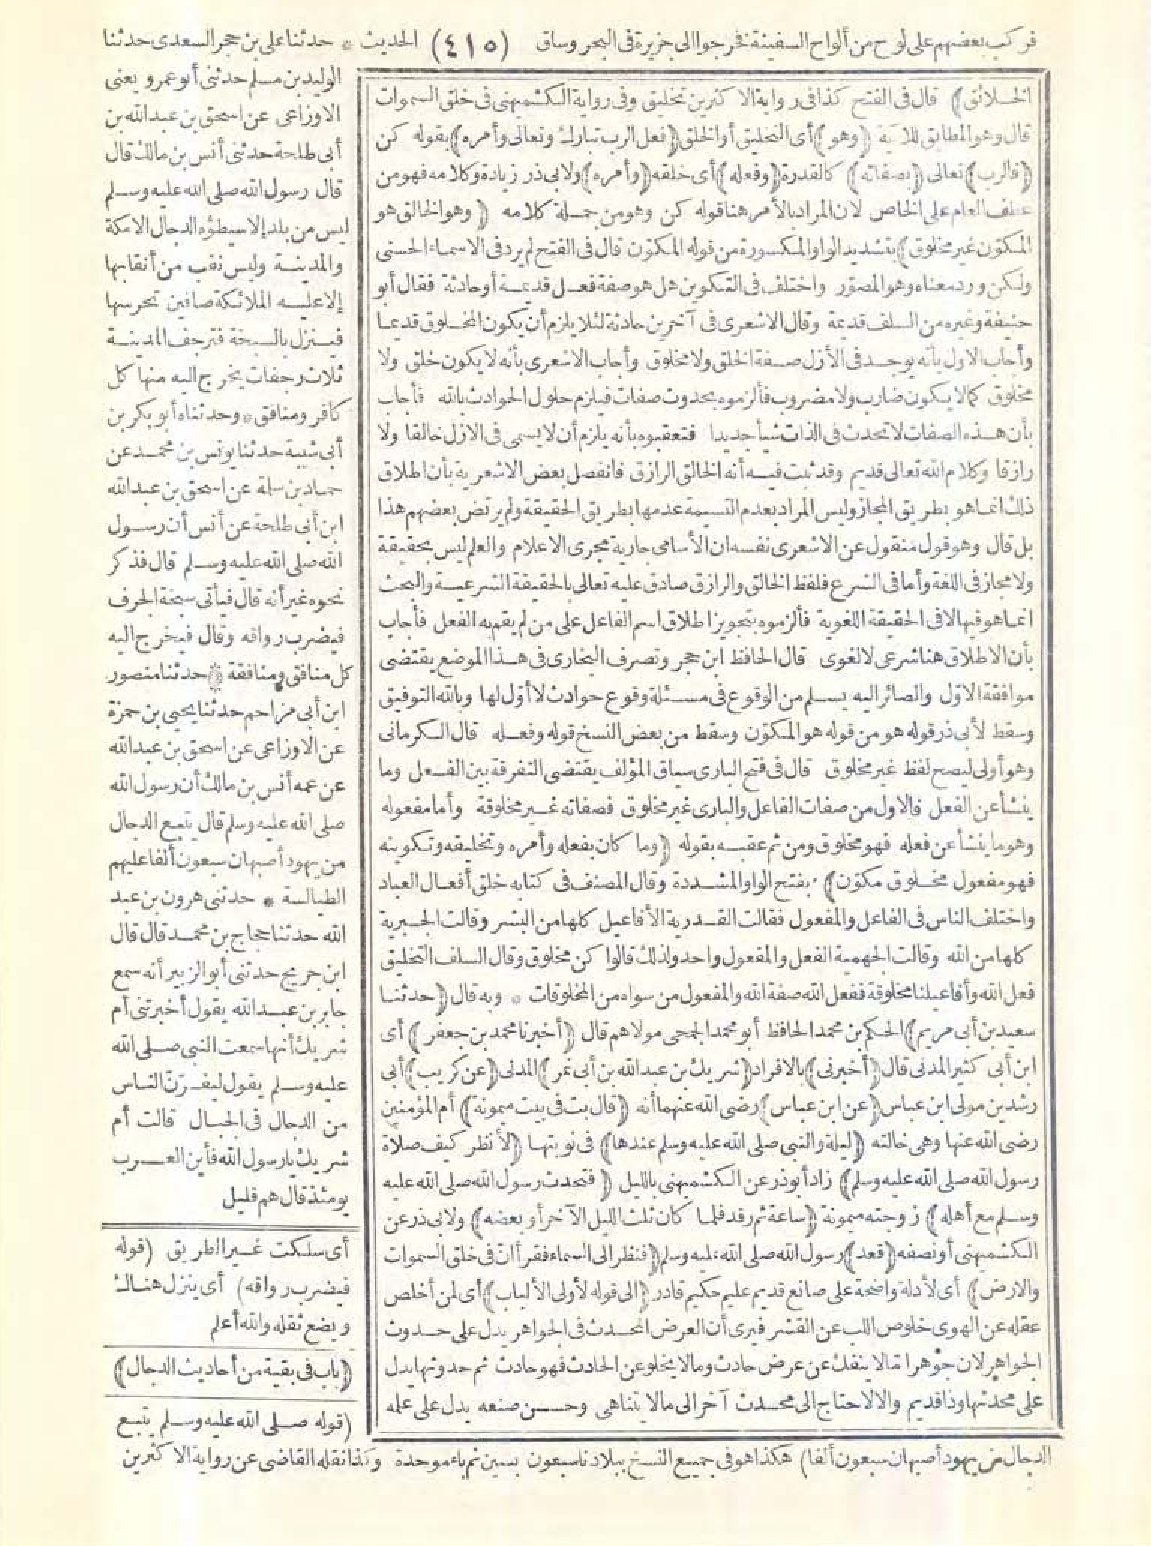 فركب بعضهم على لوح من ألواح السفينة فخرجوا الى جزيرة فى البحر وساق (٤١٥) الحديث * حدثنا على بن حجر السعدى حدثنا
الخلائق) قال فى الفتح كذا فى رواية الاكثرين تخليق وفى رواية الكشميهنى فى خلق السموات
قال وهو المطابق للآية (وهو) أى التخليق أو الخلق (فعل الرب تبارك وتعالى وأمره) بقوله كن
(فالرب) تعالى (بصفاته) كالقدرة (وفعله) أى خلقه (وأمره) ولابى ذر زيادة وكلامه فهو من
عطف العام على الخاص لان المراد بالأمر هنا قوله كن وهو من جملة كلامه (وهو الخالق هو
المكوّن غير مخلوق) بتشديد الواو المكسورة من قوله المكوّن قال فى الفتح لم يرد فى الاسماء الحسنى
ولكن ورد معناه وهو المصوّر واختلف فى التكوين هل هو صفة فعل قديمة أو حادثة فقال أبو
حنيفة وغيره من السلف قديمة وقال الاشعرى فى آخرين حادثة لئلا يلزم أن يكون المخلوق قديما
وأجاب الاول بأنه يوجد فى الأزل صفة الخلق ولا مخلوق وأجاب الاشعرى بأنه لا يكون خلق ولا
مخلوق كما لا يكون ضارب ولا مضروب فألزموه بحدوث صفات فيلزم حلول الحوادث بالله فأجاب
بأن هذه الصفات لا تحدث فى الذات شيأ جديدا فتعقبوه بأنه يلزم أن لا يسمى فى الازل خالقا ولا
رازقا وكلام الله تعالى قديم وقد ثبت فيه أنه الخالق الرازق فانفصل بعض الاشعرية بأن اطلاق
ذلك انما هو بطريق المجاز وليس المراد بعدم التسمية عدمها بطريق الحقيقة ولم يرتض بعضهم هذا
بل قال وهو قول منقول عن الاشعرى نفسه ان الأسامى جارية مجرى الاعلام والعلم ليس بحقيقة
ولا مجاز فى اللغة وأما فى الشرع فلفظ الخالق والرازق صادق عليه تعالى بالحقيقة الشرعية والبحث
انما هو فيها لا فى الحقيقة اللغوية فألزموه بتجويز اطلاق اسم الفاعل على من لم يقم به الفعل فأجاب
بأن الاطلاق هنا شرعى لا لغوى قال الحافظ ابن حجر وتصرف البخارى فى هذا الموضع يقتضى
موافقة الاول والصائر اليه يسلم من الوقوع فى مسئلة وقوع حوادث لا أول لها وبالله التوفيق
وسقط لأبى ذر قوله هو من قوله هو المكوّن وسقط من بعض النسخ قوله وفعله قال الكرمانى
وهو أولى ليصح لفظ غير مخلوق قال فى فتح البارى سياق المؤلف يقتضى التفرقة بين الفعل وما
ينشأ عن الفعل فالاول من صفات الفاعل والبارى غير مخلوق فصفاته غير مخلوقة وأما مفعوله
وهو ما ينشأ عن فعله فهو مخلوق ومن ثم عقبه بقوله (وما كان بفعله وأمره وتخليقه وتكوينه
فهو مفعول مخلوق مكون) بفتح الواو المشددة وقال المصنف فى كتابه خلق أفعال العباد
واختلف الناس فى الفاعل والمفعول فقالت القدرية الأفاعيل كلها من البشر وقالت الجبرية
كلها من الله وقالت الجهمية الفعل والمفعول واحد ولذلك قالوا كن مخلوق وقال السلف التخليق
فعل الله وأفاعيلنا مخلوقة ففعل الله صفة الله والمفعول من سواه من المخلوقات * وبه قال (حدثنا
سعيد بن أبى مريم) الحكم بن محمد الحافظ أبو محمد الجمحى مولاهم قال (أخبرنا محمد بن جعفر) أى
ابن أبى كثير المدنى قال (أخبرنى) بالافراد (شريك بن عبد الله بن أبى نمر) المدنى (عن كريب) أبى
رشدين مولى ابن عباس (عن ابن عباس) رضى الله عنهما أنه (قال بت فى بيت ميمونة) أم المؤمنين
رضى الله عنها وهى خالته (ليلة والنبى صلى الله عليه وسلم عندها) فى نوبتها (لأنظر كيف صلاة
رسول الله صلى الله عليه وسلم) زاد أبو ذر عن الكشميهنى بالليل (فتحدث رسول الله صلى الله عليه
وسلم مع أهله) زوجته ميمونة (ساعة ثم رقد فلما كان ثلث الليل الآخر أو بعضه) ولابى ذر عن
الكشميهنى أو نصفه (قعد) رسول الله صلى الله عليه وسلم (فنظر الى السماء فقرأ انّ فى خلق السموات
والارض) أى لأدلة واضحة على صانع قديم عليم حكيم قادر (الى قوله لأولى الألباب) أى لمن أخلص
عقله عن الهوى خلوص اللب عن القشر فيرى أن العرض المحدث فى الجواهر يدل على حدوث
الجواهر لان جوهرا ما لا ينفك عن عرض حادث وما لا يخلو عن الحادث فهو حادث ثم حدوثها يدل
على محدثها وذا قديم والا لاحتاج الى محدث آخر الى ما لا يتناهى وحسن صنعه يدل على علمه
الوليد بن مسلم حدثنى أبو عمرو يعنى
الاوزاعى عن اسحق بن عبد الله بن
أبى طلحة حدثنى أنس بن مالك قال
قال رسول الله صلى الله عليه وسلم
ليس من بلد إلا سيطؤه الدجال الا مكة
والمدينة وليس نقب من أنقابها
إلا عليه الملائكة صافين تحرسها
فينزل بالسبخة فترجف المدينة
ثلاث رجفات يخرج اليه منها كل
كافر ومنافق * وحدثناه أبو بكر بن
أبى شيبة حدثنا يونس بن محمد عن
حماد بن سلمة عن اسحق بن عبد الله
ابن أبى طلحة عن أنس أن رسول
الله صلى الله عليه وسلم قال فذكر
نحوه غير أنه قال فيأتى سبخة الجرف
فيضرب رواقه وقال فيخرج اليه
كل منافق ومنافقة * حدثنا منصور
ابن أبى مزاحم حدثنا يحيى بن حمزة
عن الاوزاعى عن اسحق بن عبد الله
عن عمه أنس بن مالك أن رسول الله
صلى الله عليه وسلم قال يتبع الدجال
من يهود أصبهان سبعون ألفا عليهم
الطيالسة * حدثنى هرون بن عبد
الله حدثنا حجاج بن محمد قال قال
ابن جريج حدثنى أبو الزبير أنه سمع
جابر بن عبد الله يقول أخبرتنى أم
شريك أنها سمعت النبى صلى الله
عليه وسلم يقول ليفرّنّ الناس
من الدجال فى الجبال قالت أم
شريك يا رسول الله فأين العرب
يومئذ قال هم قليل
أى سلكت غير الطريق (قوله
فيضرب رواقه) أى ينزل هناك
ويضع ثقله والله أعلم
(باب فى بقية من أحاديث الدجال)
(قوله صلى الله عليه وسلم يتبع
الدجال من يهود أصبهان سبعون ألفا) هكذا هو فى جميع النسخ ببلادنا سبعون بسين ثم باء موحدة وكذا نقله القاضى عن رواية الاكثرين